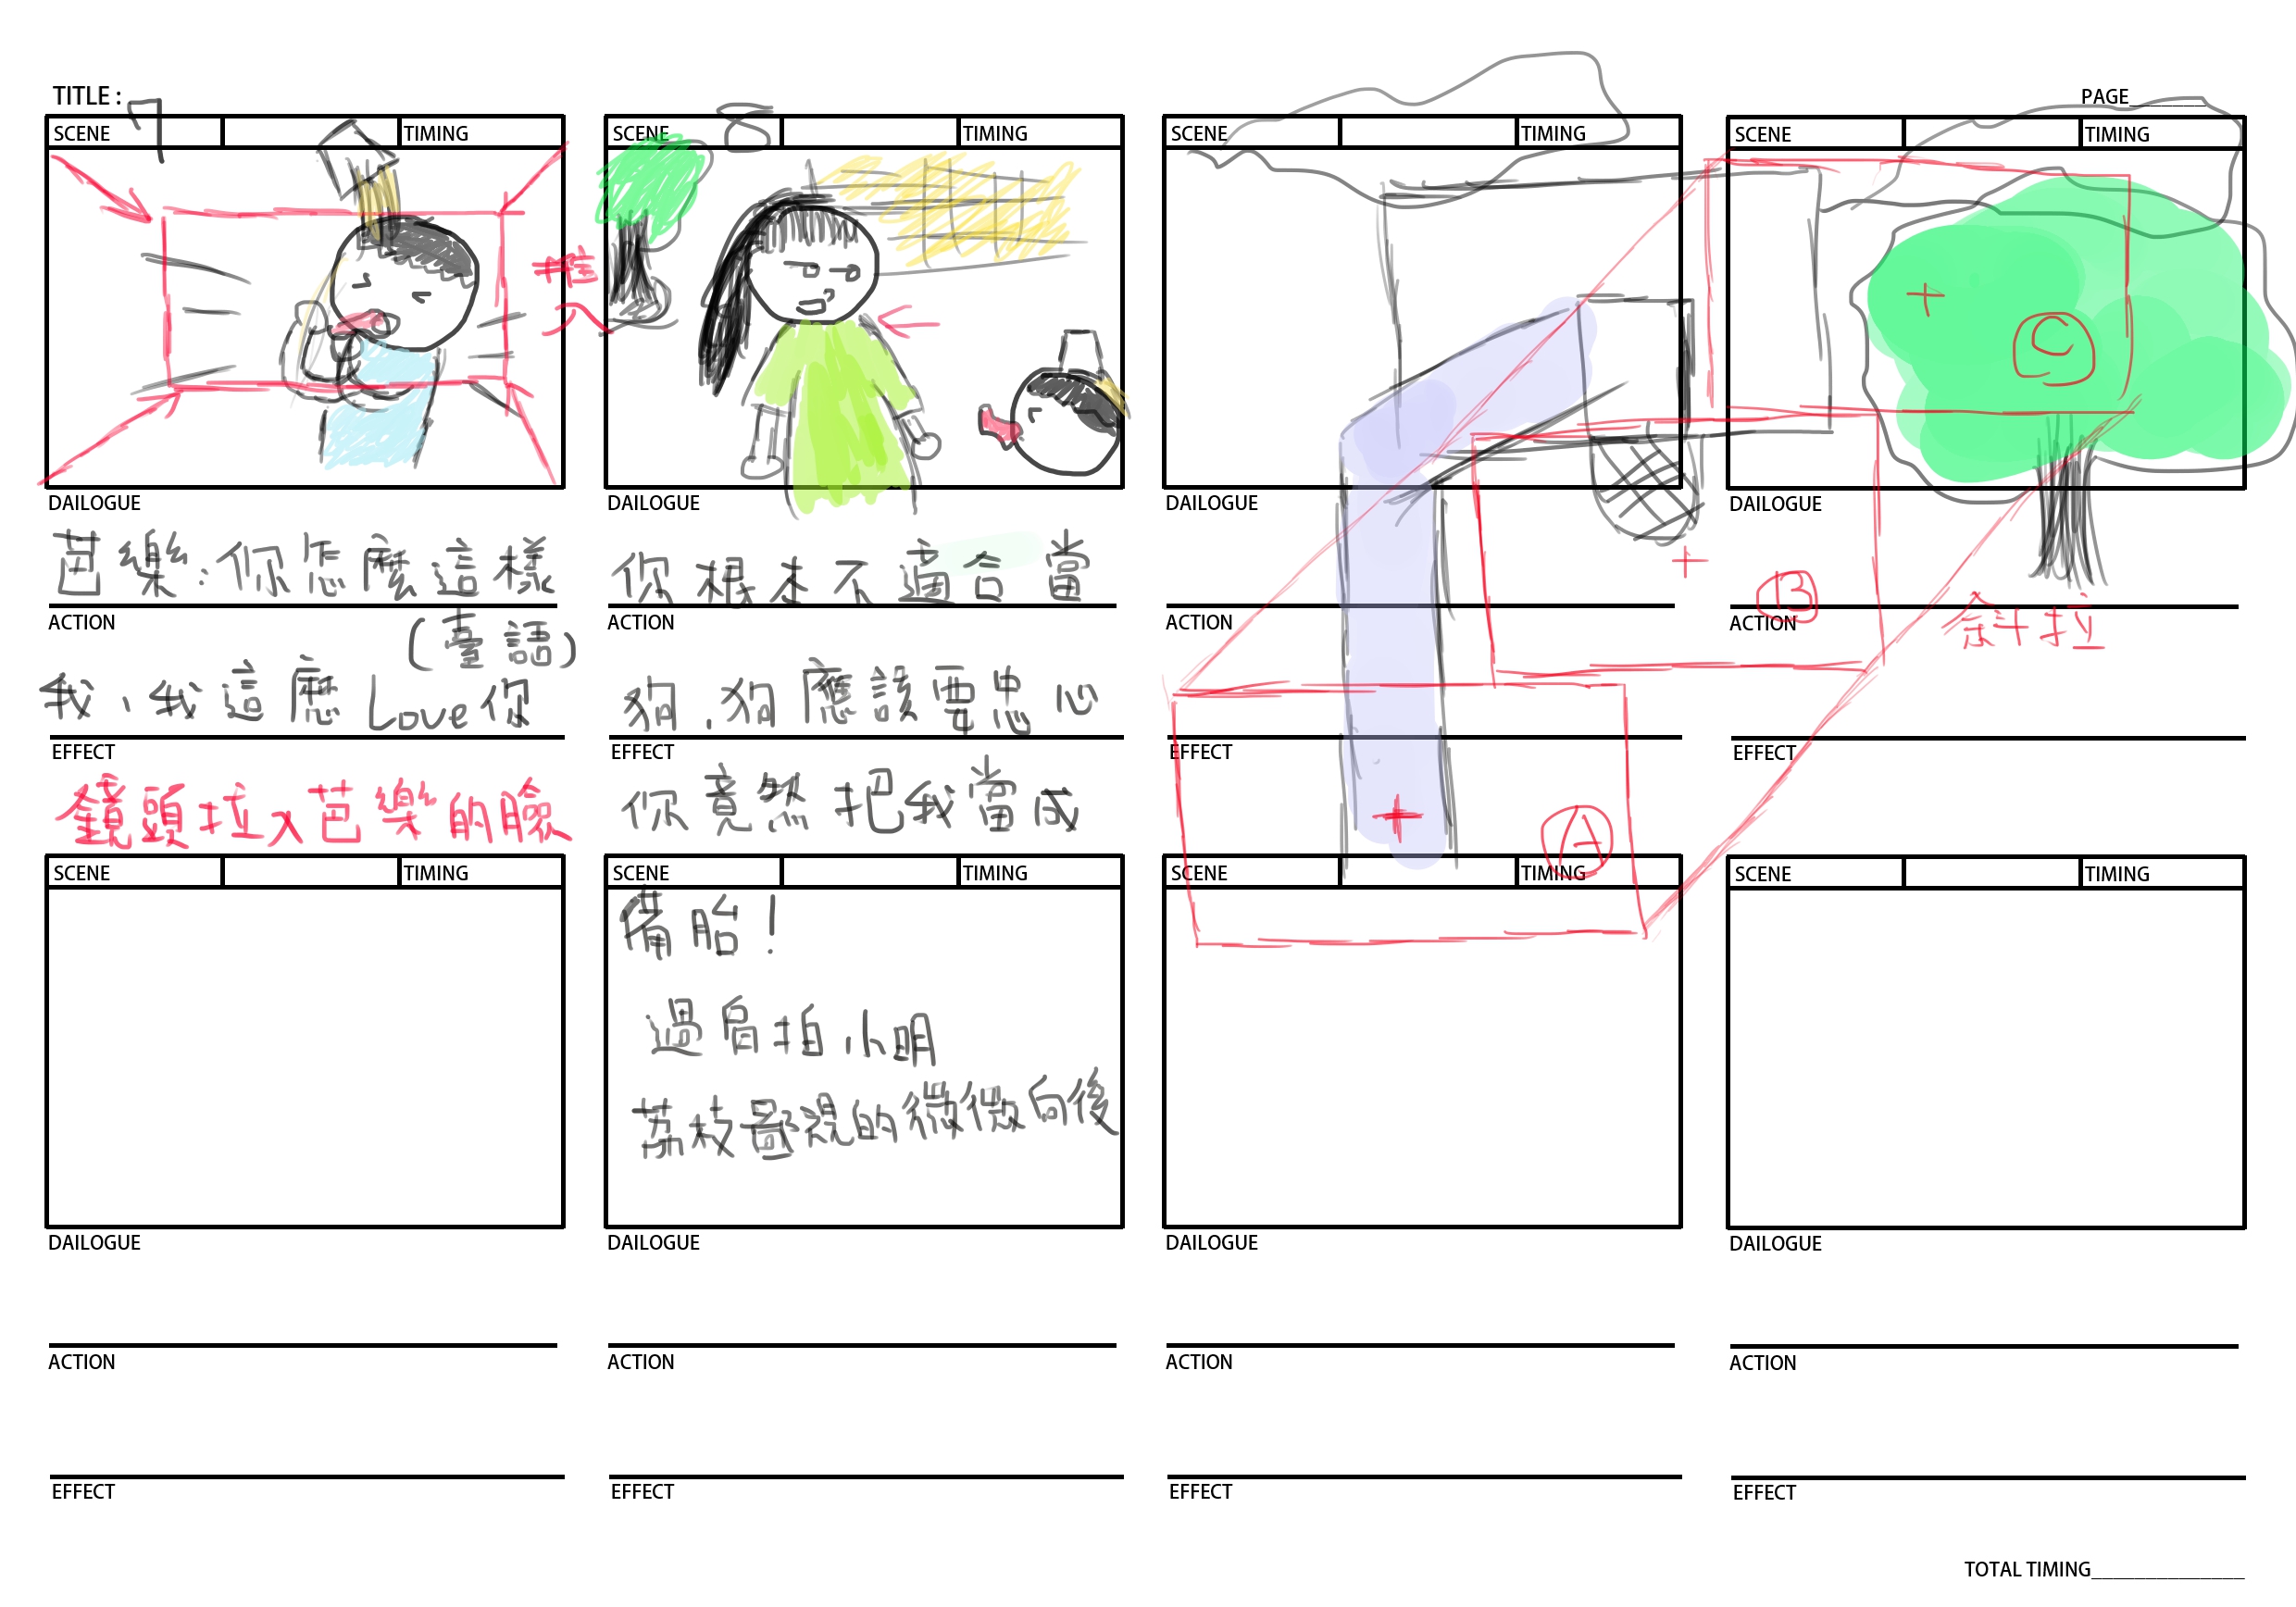 TITLE :
PAGE_______
SCENE 7 TIMING
推入
DAILOGUE
芭樂:你怎麼這樣
ACTION
(臺語)
我、我這麼Love你
EFFECT
鏡頭拉入芭樂的臉
SCENE 8 TIMING
DAILOGUE
你根本不適合當
ACTION
狗,狗應該要忠心
EFFECT
你竟然把我當成
SCENE TIMING
備胎!
過肩拍小明
荔枝鄙視的微微向後
SCENE TIMING
DAILOGUE
ACTION
EFFECT
A
SCENE TIMING
C
DAILOGUE
B
ACTION
斜拉
EFFECT
SCENE TIMING
DAILOGUE
ACTION
EFFECT
DAILOGUE
ACTION
EFFECT
SCENE TIMING
DAILOGUE
ACTION
EFFECT
SCENE TIMING
DAILOGUE
ACTION
EFFECT
TOTAL TIMING______________